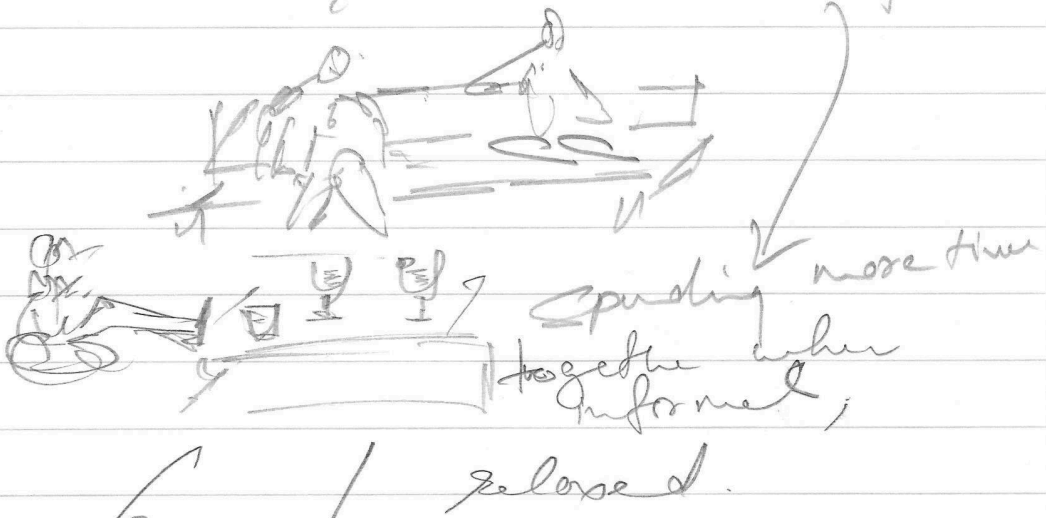 Spending more time
together when
informal,
relaxed.